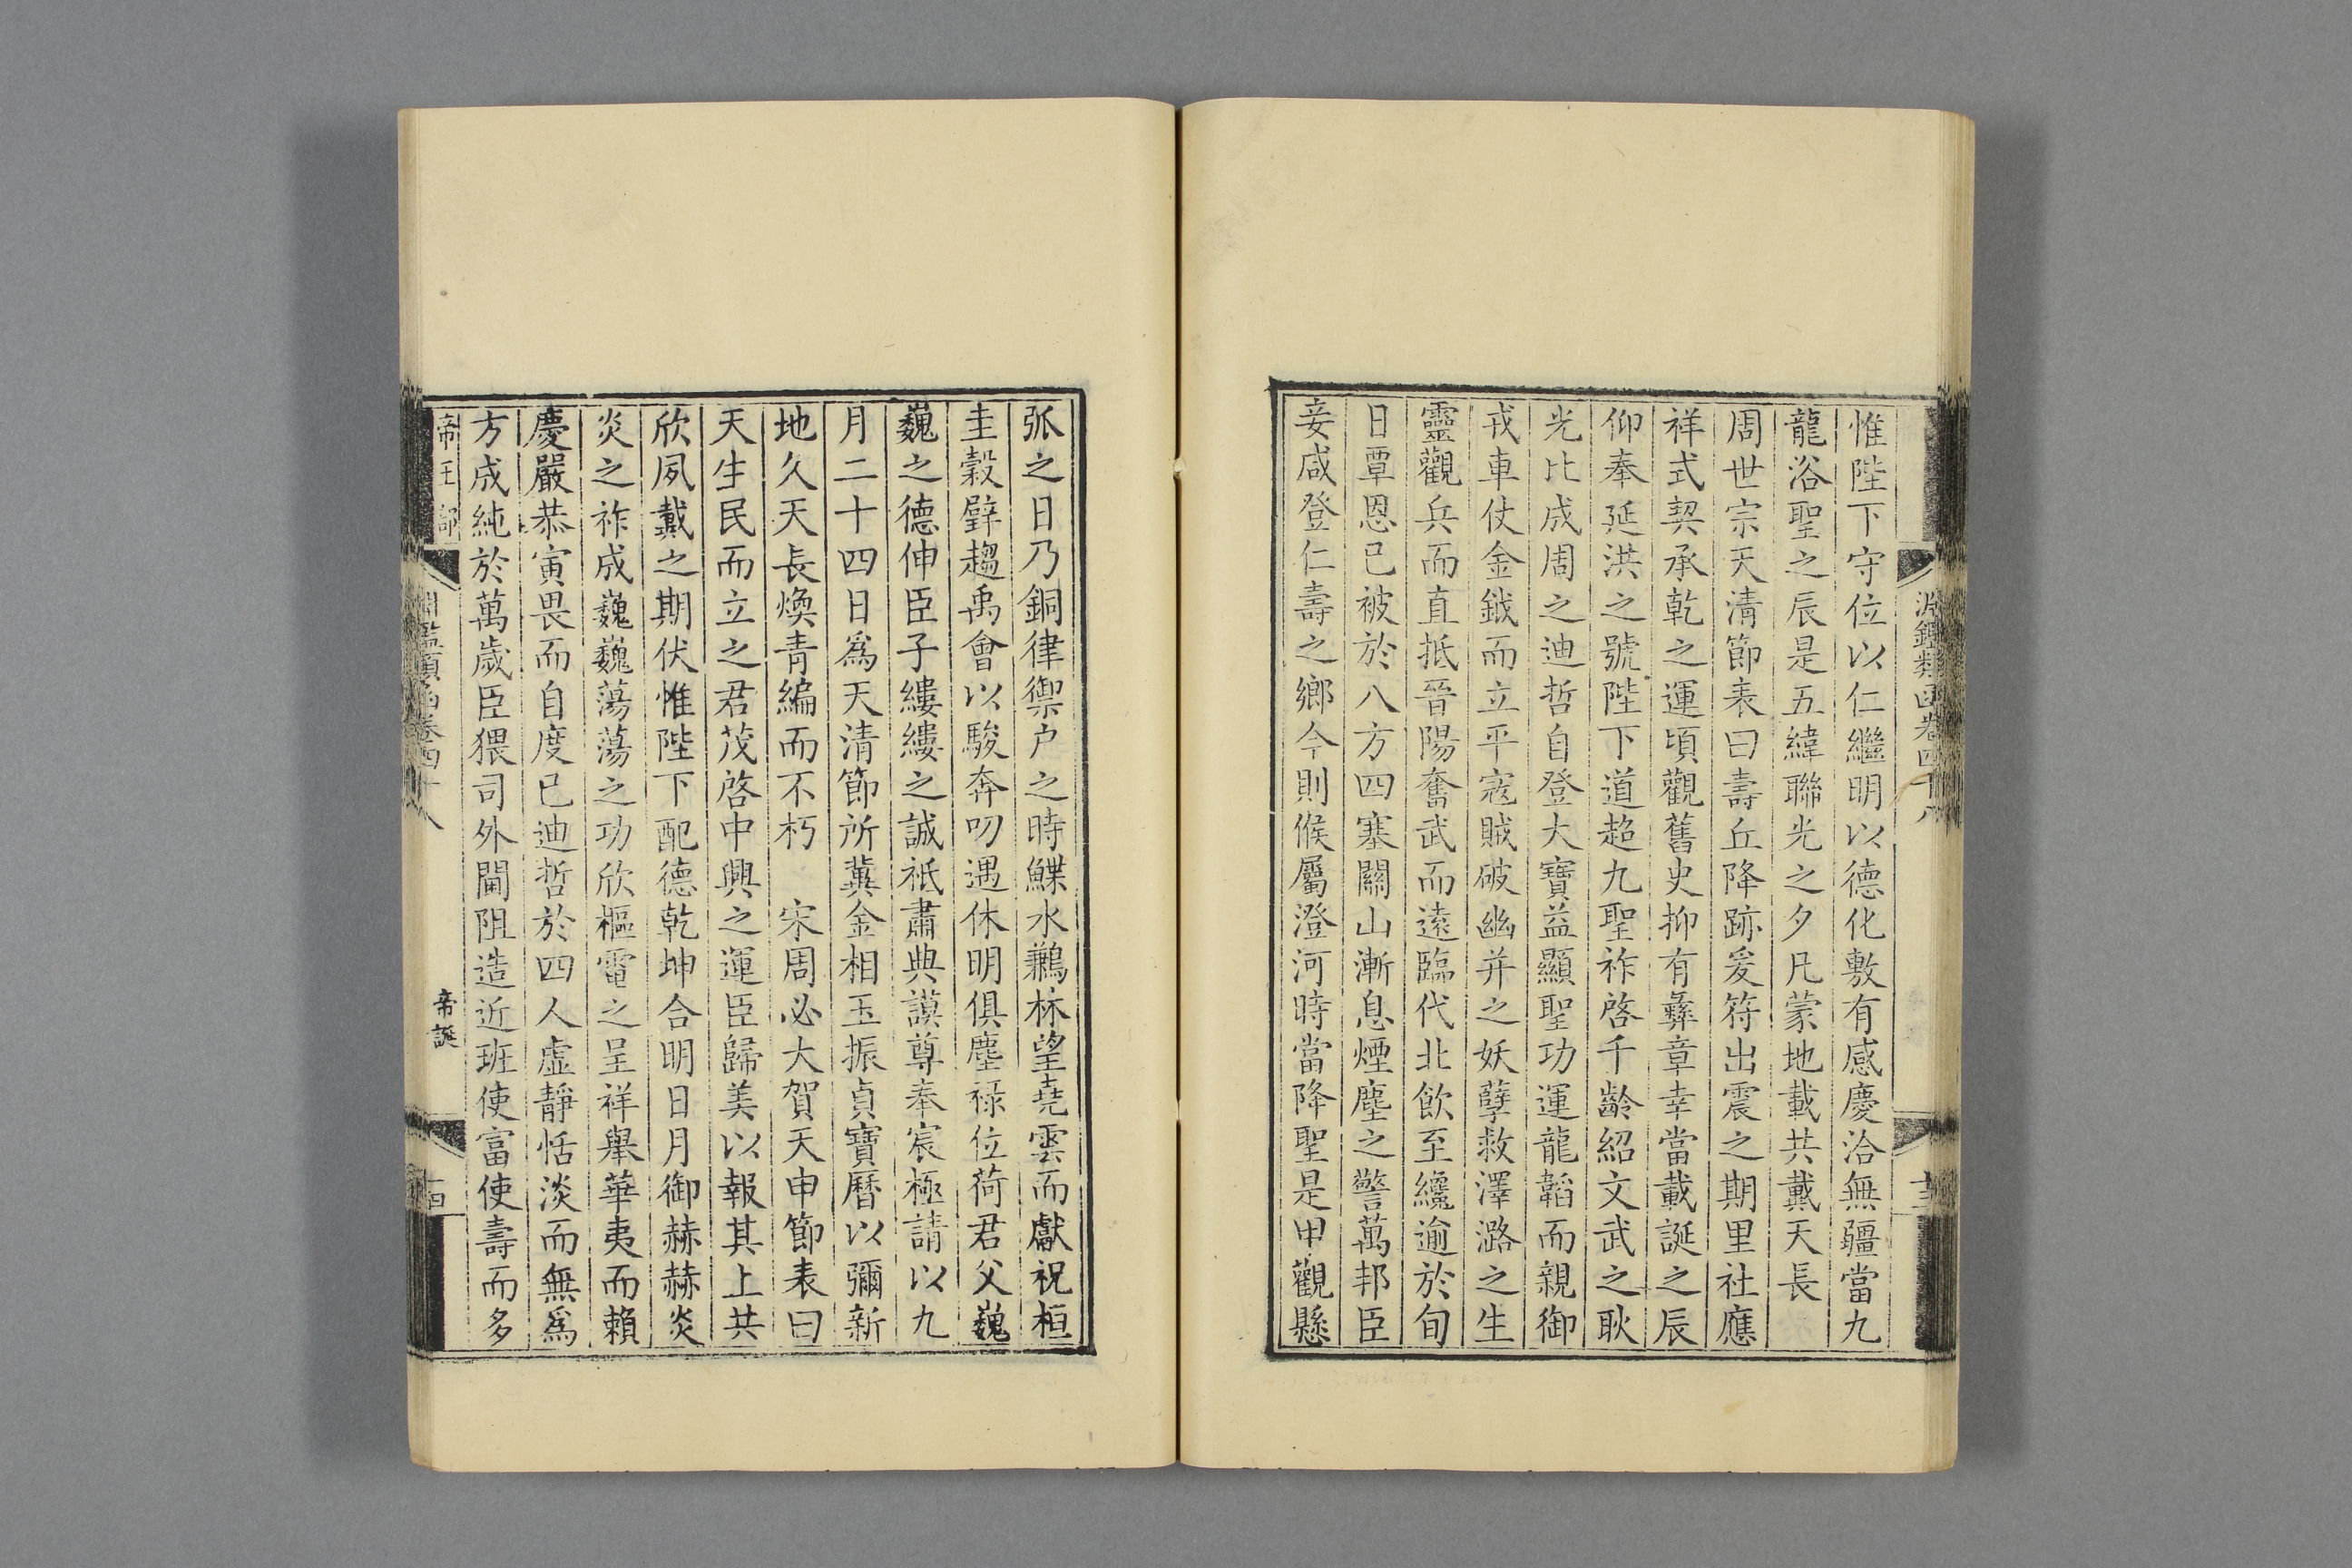 淵鑑類函卷四十八
惟陛下守位以仁繼明以德化敷有感慶洽無疆當九
龍浴聖之辰是五緯聯光之夕凡蒙地載共戴天長
周世宗天清節表曰壽丘降跡爰符出震之期里社應
祥式契承乾之運頃觀舊史抑有彝章幸當載誕之辰
仰奉延洪之號陛下道超九聖祚啓千齡紹文武之耿
光比成周之迪哲自登大寶益顯聖功運龍韜而親御
戎車仗金鉞而立平寇賊破幽并之妖孽救澤潞之生
靈觀兵而直抵晉陽奮武而遠臨代北飲至纔逾於旬
日覃恩已被於八方四塞關山漸息煙塵之警萬邦臣
妾咸登仁壽之鄉今則候屬澄河時當降聖是甲觀懸
弧之日乃銅律禦户之時鰈水鶼林望堯雲而獻祝桓
圭穀璧趨禹會以駿奔叨遇休明俱塵祿位荷君父巍
巍之德伸臣子縷縷之誠祗肅典謨尊奉宸極請以九
月二十四日爲天清節所冀金相玉振貞寶曆以彌新
地久天長煥青編而不朽　宋周必大賀天申節表曰
天生民而立之君茂啓中興之運臣歸美以報其上共
欣夙戴之期伏惟陛下配德乾坤合明日月御赫赫炎
炎之祚成巍巍蕩蕩之功欣樞電之呈祥舉華夷而賴
慶嚴恭寅畏而自度已迪哲於四人虛靜恬淡而無爲
方成純於萬歲臣猥司外閫阻造近班使富使壽而多
帝王部 帝誕
淵鑑類函卷四十八
十四